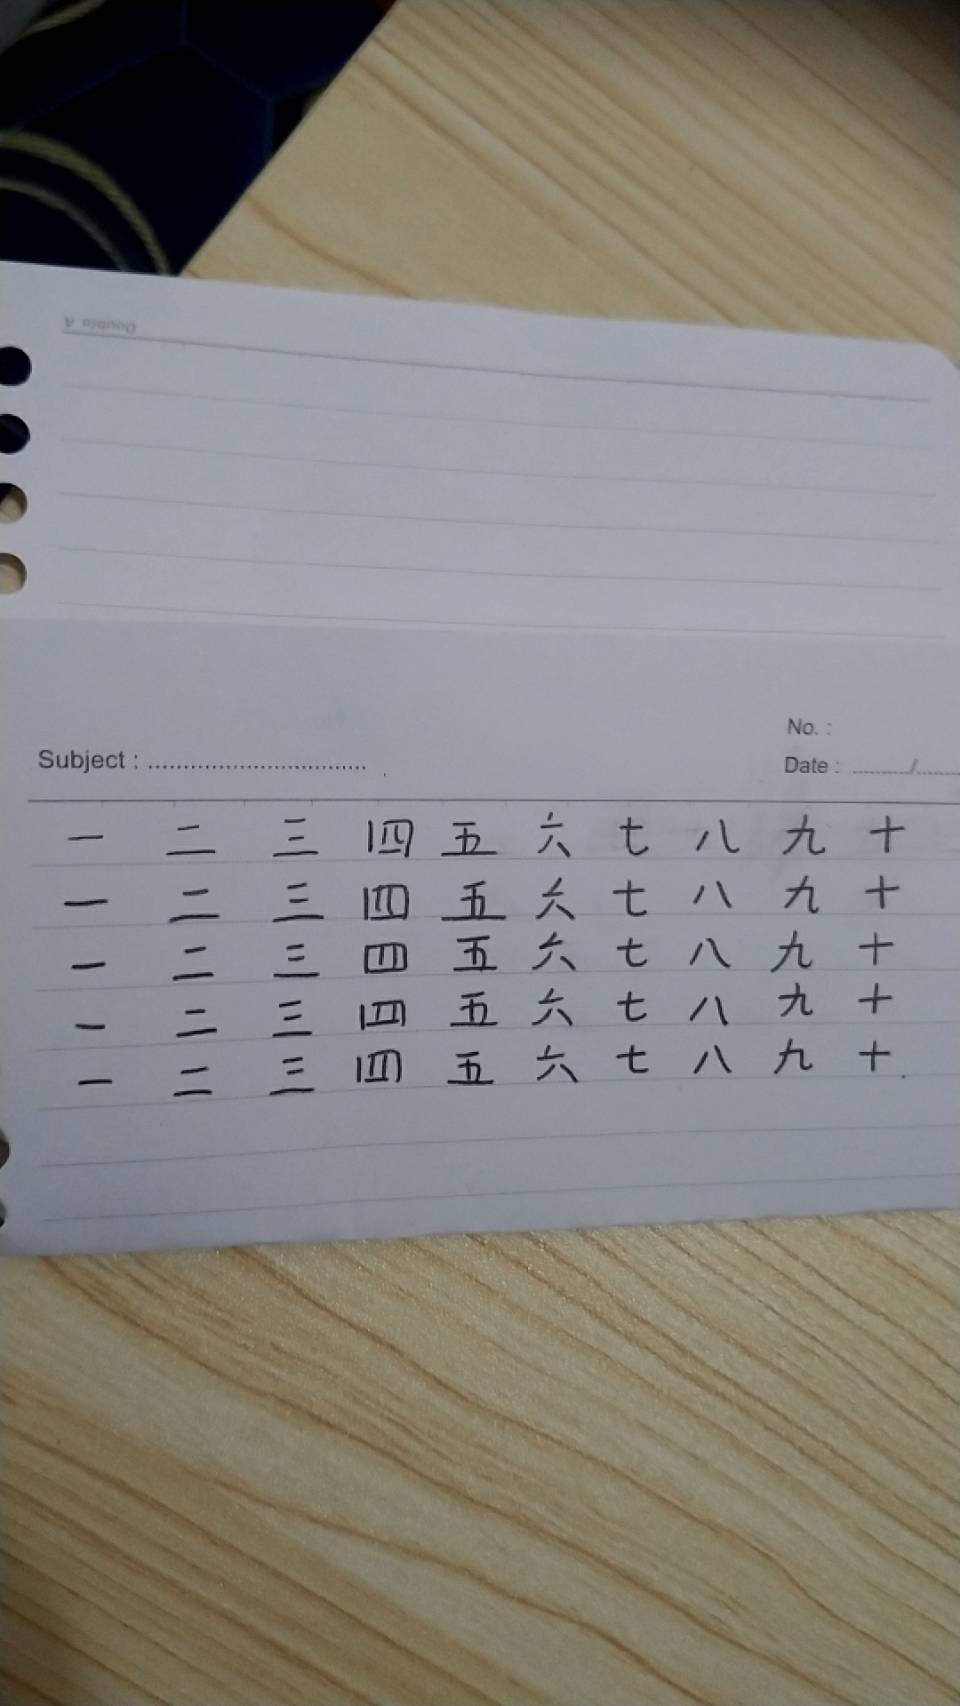 Double A
Subject : ................................
No. :
Date : ........../........
一 二 三 四 五 六 七 八 九 十
一 二 三 四 五 六 七 八 九 十
一 二 三 四 五 六 七 八 九 十
一 二 三 四 五 六 七 八 九 十
一 二 三 四 五 六 七 八 九 十